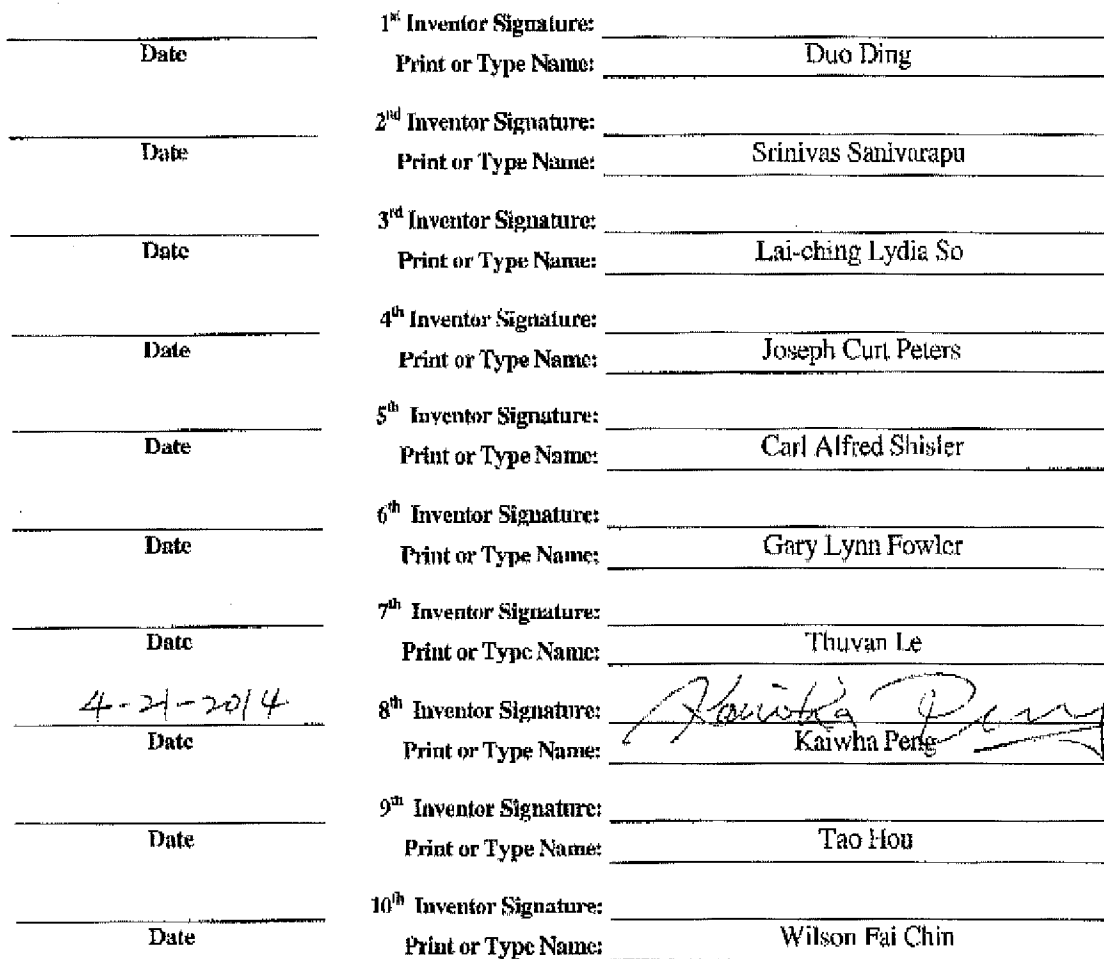 1st Inventor Signature:
Date
Print or Type Name: Duo Ding
2nd Inventor Signature:
Date
Print or Type Name: Srinivas Sanivarapu
3rd Inventor Signature:
Date
Print or Type Name: Lai-ching Lydia So
4th Inventor Signature:
Date
Print or Type Name: Joseph Curt Peters
5th Inventor Signature:
Date
Print or Type Name: Carl Alfred Shisler
6th Inventor Signature:
Date
Print or Type Name: Gary Lynn Fowler
7th Inventor Signature:
Date
Print or Type Name: Thuvan Le
4-21-2014 8th Inventor Signature: Kaiwha Peng
Date
Print or Type Name: Kaiwha Peng
9th Inventor Signature:
Date
Print or Type Name: Tao Hou
10th Inventor Signature:
Date
Print or Type Name: Wilson Fai Chin